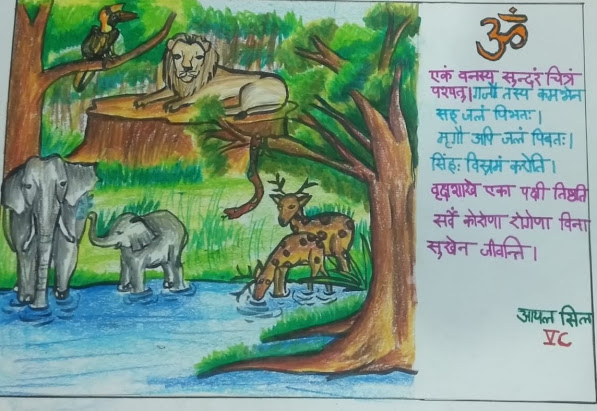 ॐ
एकं वनस्य सुन्दरं चित्रं
पश्यतु। गजौ तस्य कमभेन
सह जलं पिभतः।
मृगौ अपि जलं पिबतः।
सिंहः विस्रमं करोति।
वृक्षशाखे एका पक्षी तिष्ठति
सर्वे कोरोणा रोगेणा विना
सुखेन जीवन्ति।
आयल सिल
VC